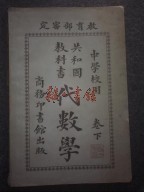 教育部審定
中學校用
共和國
教科書
代數學
卷下
商務印書館出版